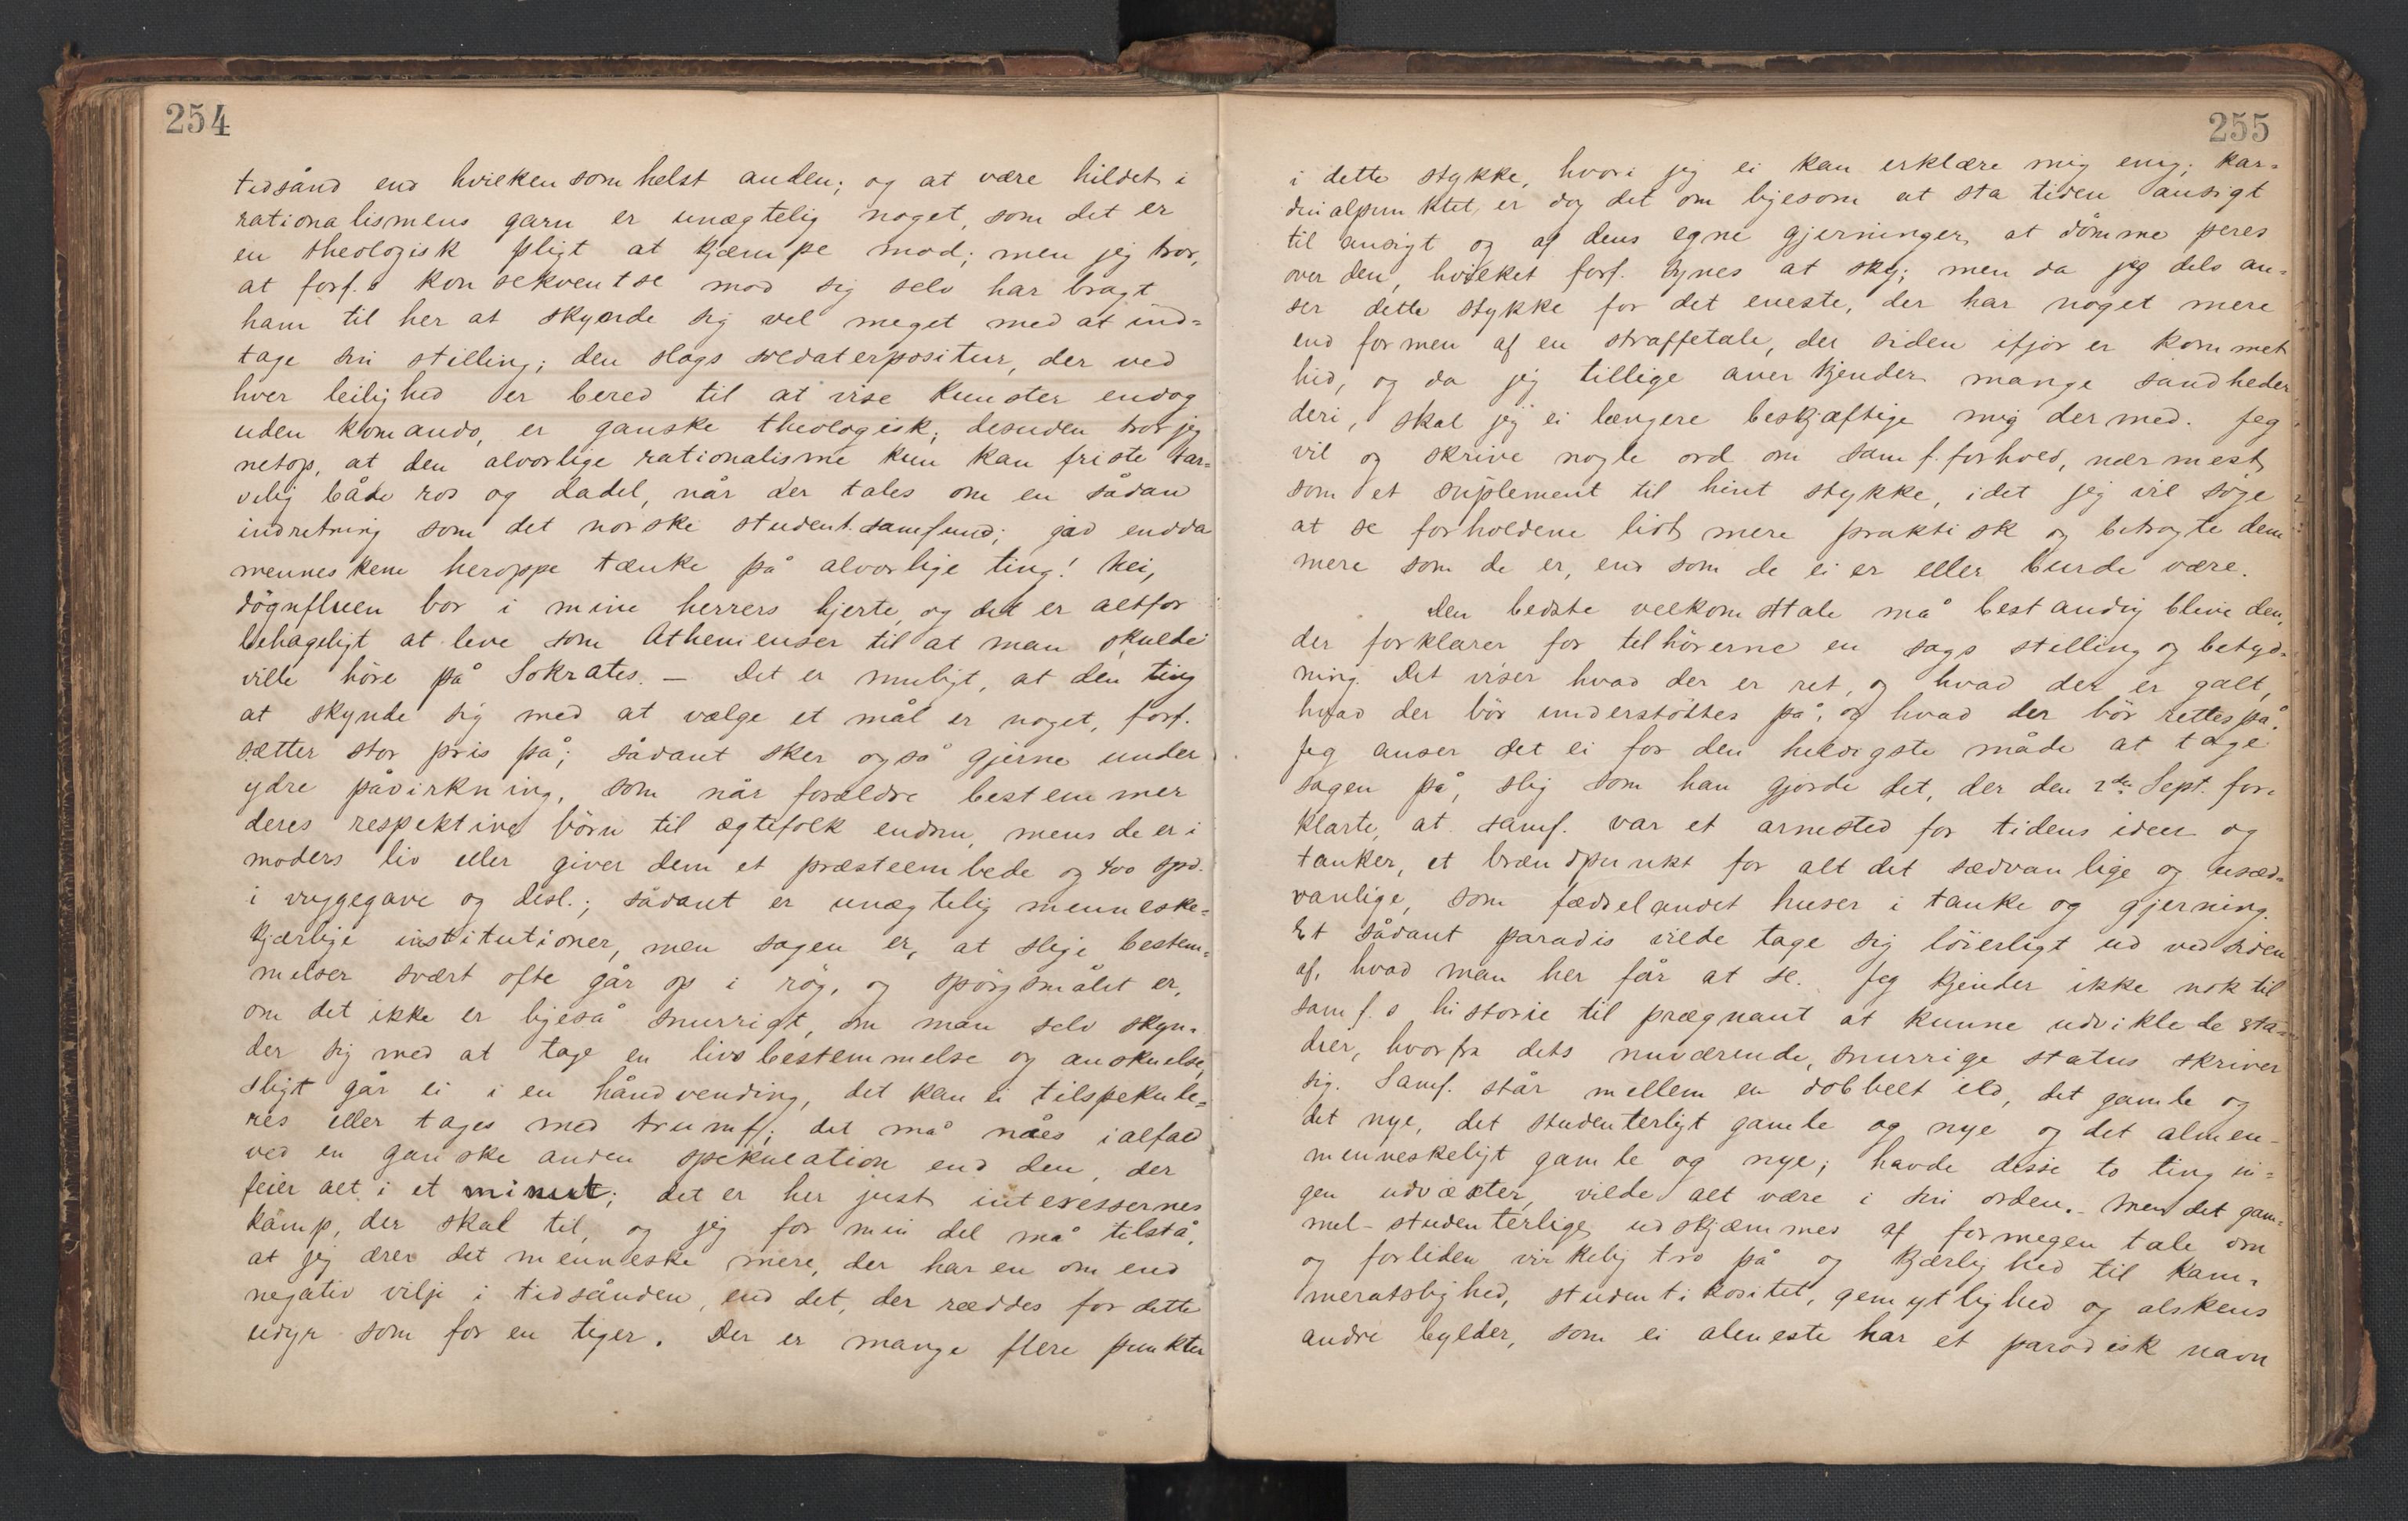 254
tidsånd end hvilkensomhelst anden; og at være hildet i
rationalismens garn er unægtelig noget, som det er
en theologisk pligt at kjæmpe mod; men jeg tror,
at forf.s konsekventse mod sig selv har bragt
ham til her at skynde sig vel meget med at ind=
tage sin stilling; den slags soldaterpositur, der ved
hver leilighed er bered til at vise kunster endog
uden komando, er ganske theologisk; desuden tror jeg
netop, at den alvorlige rationalisme kun kan friste tar=
velig både ros og dadel, når der tales om en sådan
indretning som det norske student.samfund; gad endda
menneskene heroppe tænke på alvorlige ting! Nei,
døgnfluen bor i mine herrers hjerte, og det er altfor
behageligt at leve som Athenienser til at man skulde
ville høre på Sokrates. – Det er muligt, at den ting
at skynde sig med at vælge et mål er noget, forf.
sætter stor pris på; sådant sker også gjerne under
ydre påvirkning, som når forældre bestemmer
deres respektive børn til ægtefolk endnu, mens de er i
moders liv eller giver dem et præsteembede og 400 spd.
i vuggegave og desl.; sådant er unægtelig menneske=
kjærlige institutioner, men sagen er, at slige bestem=
melser svært ofte går op i røg, og spørgsmålet er,
om det ikke er ligeså snurrigt, om man selv skyn=
der sig med at tage en livsbestemmelse og anskuelse,
sligt går ei i en håndvending, det kan ei tilspekule=
res eller tages med trumf; det må nåes ialfald
ved en ganske anden spekulation end den, der
feier alt i et minut; det er her just interessernes
kamp, der skal til, og jeg for min del må tilstå,
at jeg ærer det menneske mere, der har en om end
negativ vilje i tidsånden, end det, der ræddes for dette
udyr som for en tiger. Der er mange flere punkter
255
i dette stykke, hvori jeg ei kan erklære mig enig; kar=
dinalpunktet er dog det om ligesom at sta tiden ansigt
til ansigt og af dens egne gjerninger at dømme peres
over den, hvilket forf. synes at sky; men da jeg dels an=
ser dette stykke for det eneste, der har noget mere
end formen af en straffetale, der siden ifjor er kommet
hid, og da jeg tillige anerkjender mange sandheder
deri, skal jeg ei længere beskjæftige mig dermed. Jeg
vil og skrive nogle ord om samf.forhold, nærmest
som et suplement til hint stykke, idet jeg vil søge
at se forholdene lidt mere praktisk og betragte dem
mere som de er, end som de ei er eller burde være.
Den bedste velkomsttale må bestandig blive den,
der forklarer for tilhørerne en sags stilling og betyd=
ning. Det viser hvad der er ret, og hvad der er galt,
hvad der bør understøttes på, og hvad der bør rettes på.
Jeg anser det ei for den heldigste måde at tage
sagen på, slig som han gjorde det, der den 2den Sept. for=
klarte, at samf. var et arnested for tidens ideer og
tanker, et brændpunkt for alt det sædvanlige og usæd=
vanlige, som fædrelandet huser i tanke og gjerning.
Et sådant paradis vilde tage sig løierligt ud ved siden
af, hvad man her får at se. Jeg kjender ikke nok til
samf.s historie til prægnant at kunne udvikle de sta=
dier, hvorfra dets nuværende, snurrige status skriver
sig. Samf. står mellem en dobbelt ild, det gamle og
det nye, det studenterligt gamle og nye og det almen=
menneskeligt gamle og nye; havde disse to ting in=
gen udvæxter, vilde alt være i sin orden. – Men det gam=
mel-studenterlige udskjæmmes af formegen tale om
og forliden virkelig tro på og kjærlighed til kam=
meratslighed, studentikositet, gemytlighed og alskens
andre bylder, som ei aleneste har et parodisk navn